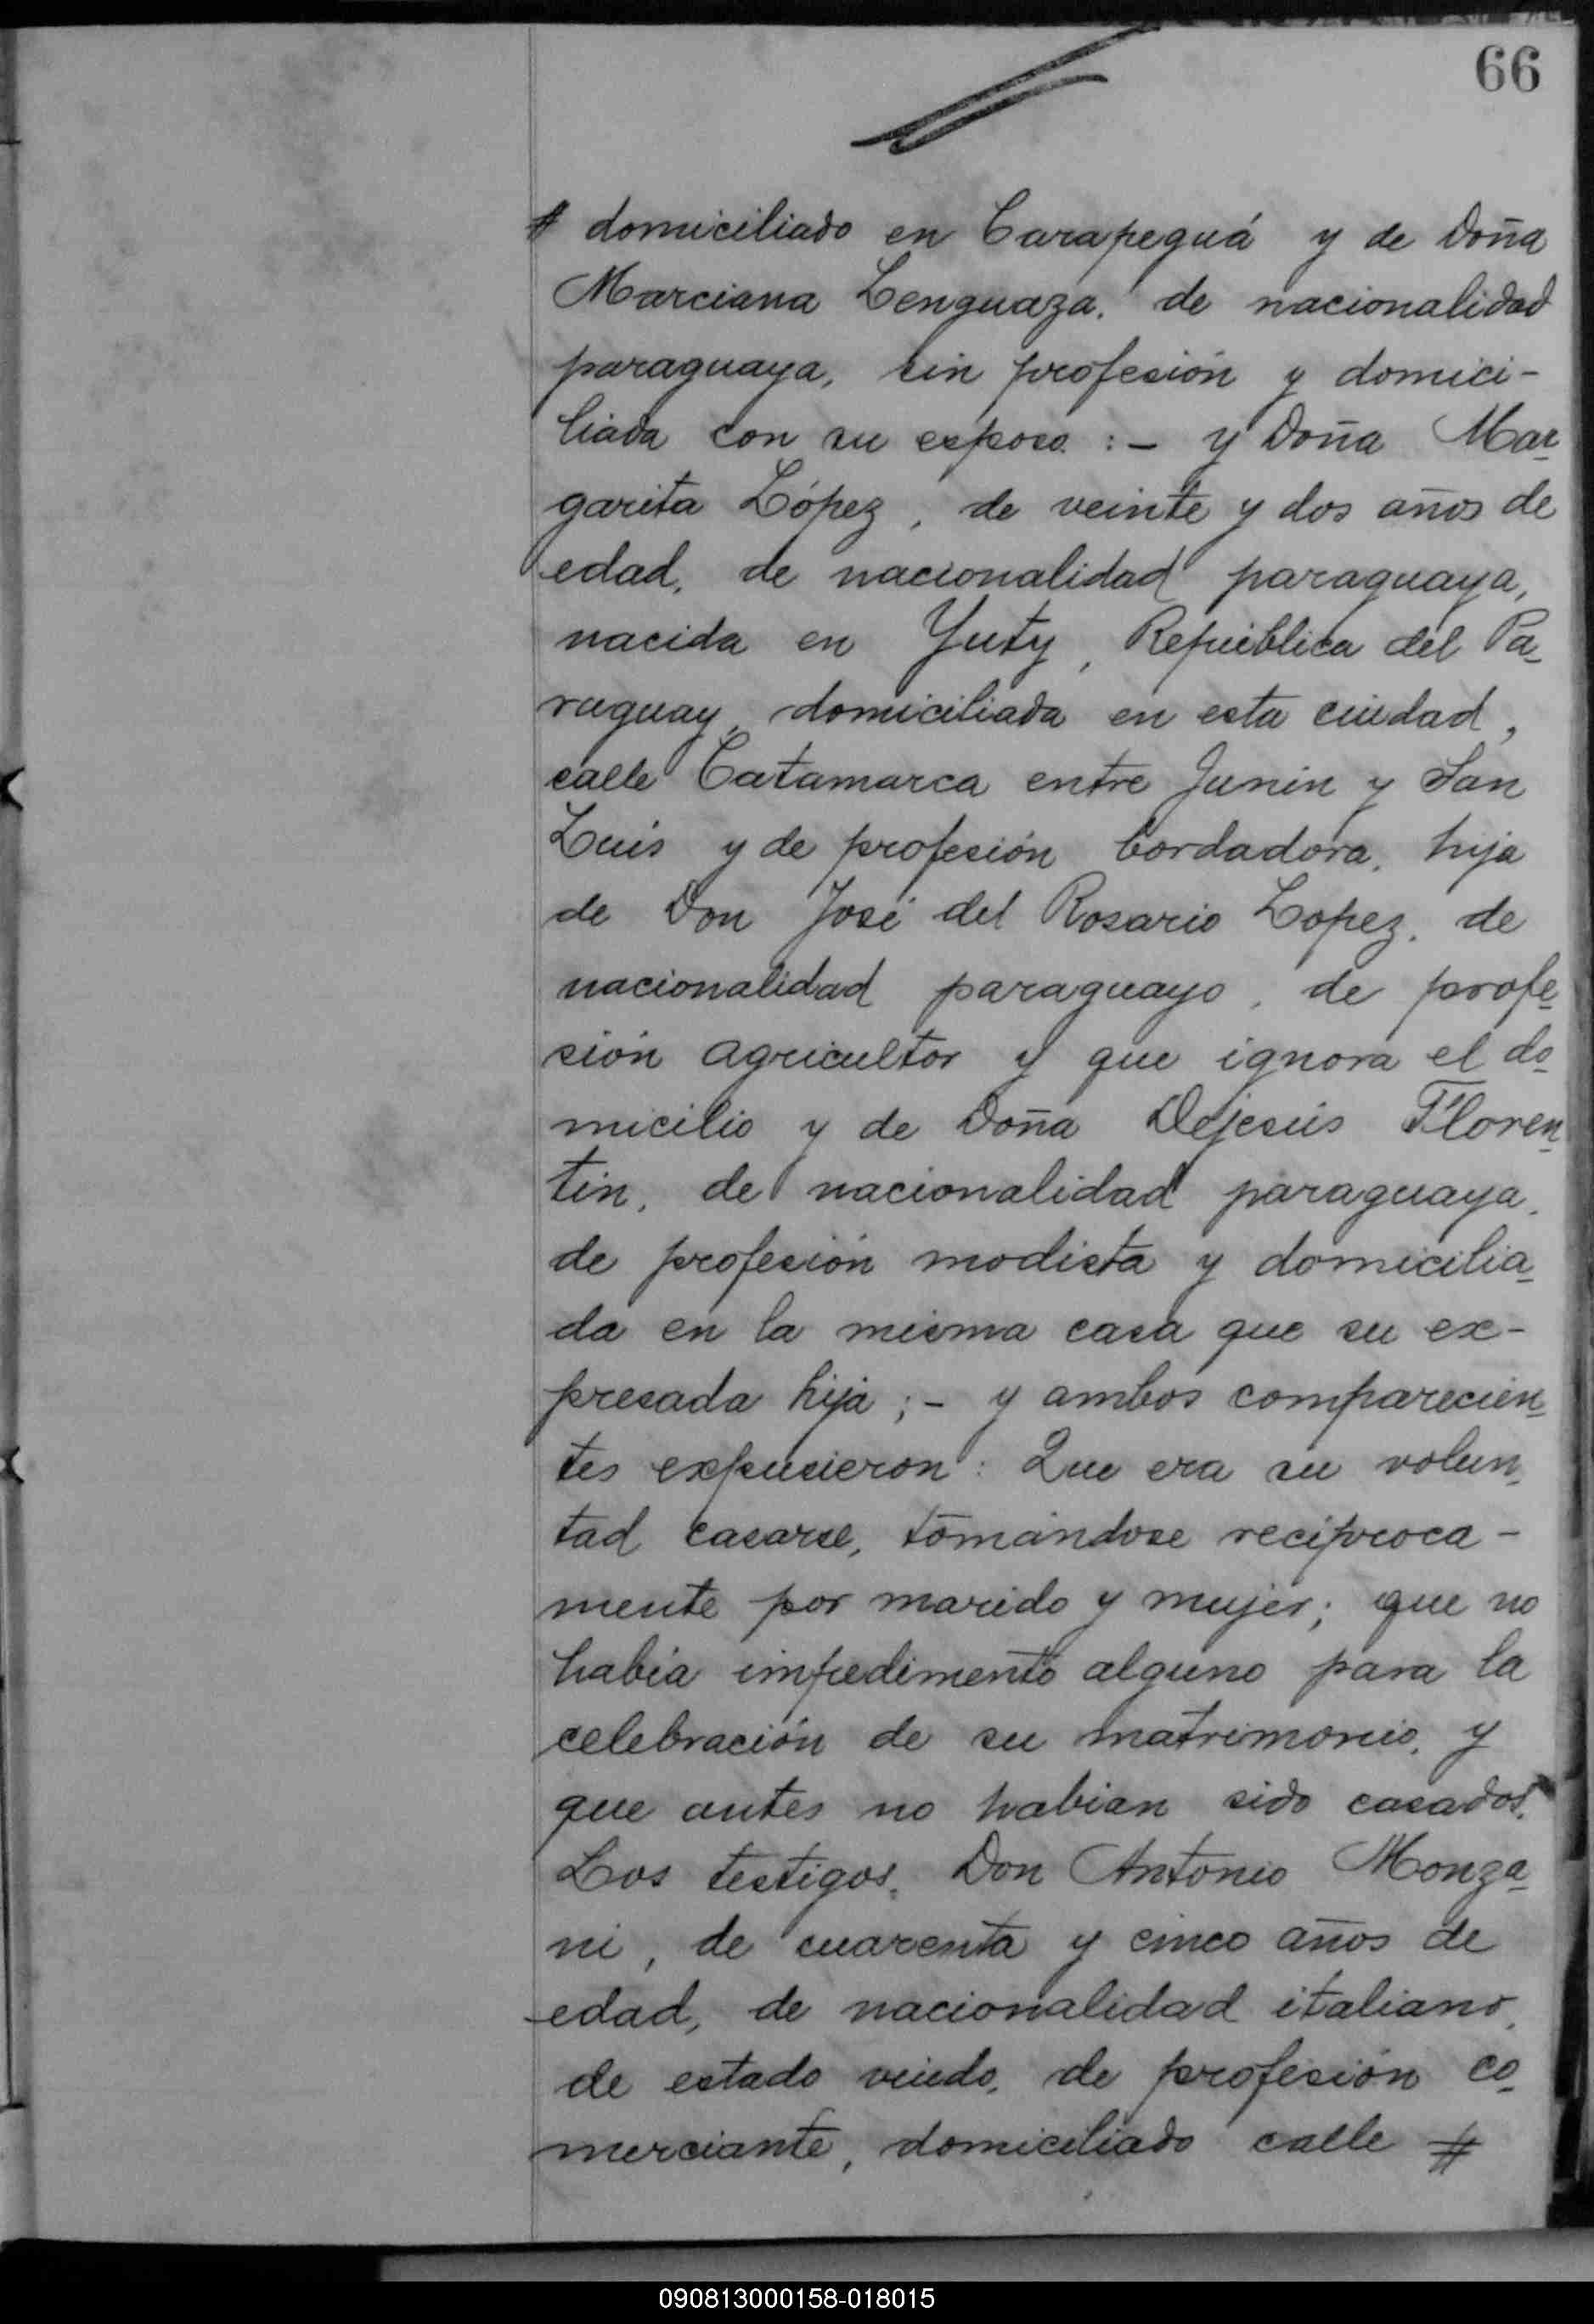 66
# domiciliado en Carapeguá y de Doña
Marciana Lenguaza, de nacionalidad
paraguaya, sin profesión y domici-
liada con su esposo :- y Doña Mar-
garita López, de veinte y dos años de
edad, de nacionalidad paraguaya,
nacida en Yuty, República del Pa-
raguay, domiciliada en esta ciudad,
calle Catamarca entre Junín y San
Luis y de profesión bordadora, hija
de Don José del Rosario Lopez, de
nacionalidad paraguayo, de profe-
sión agricultor y que ignora el do-
micilio y de Doña Dejesús Floren-
tin, de nacionalidad paraguaya,
de profesión modista y domicilia-
da en la misma casa que su ex-
presada hija ;- y ambos comparecien-
tes expusieron: Que era su volun-
tad casarse, tomándose recíproca-
mente por marido y mujer; que no
había impedimento alguno para la
celebración de su matrimonio, y
que antes no habian sido casados.
Los testigos, Don Antonio Monza-
ni, de cuarenta y cinco años de
edad, de nacionalidad italiano,
de estado viudo, de profesión co-
merciante, domiciliado calle #
090813000158-018015